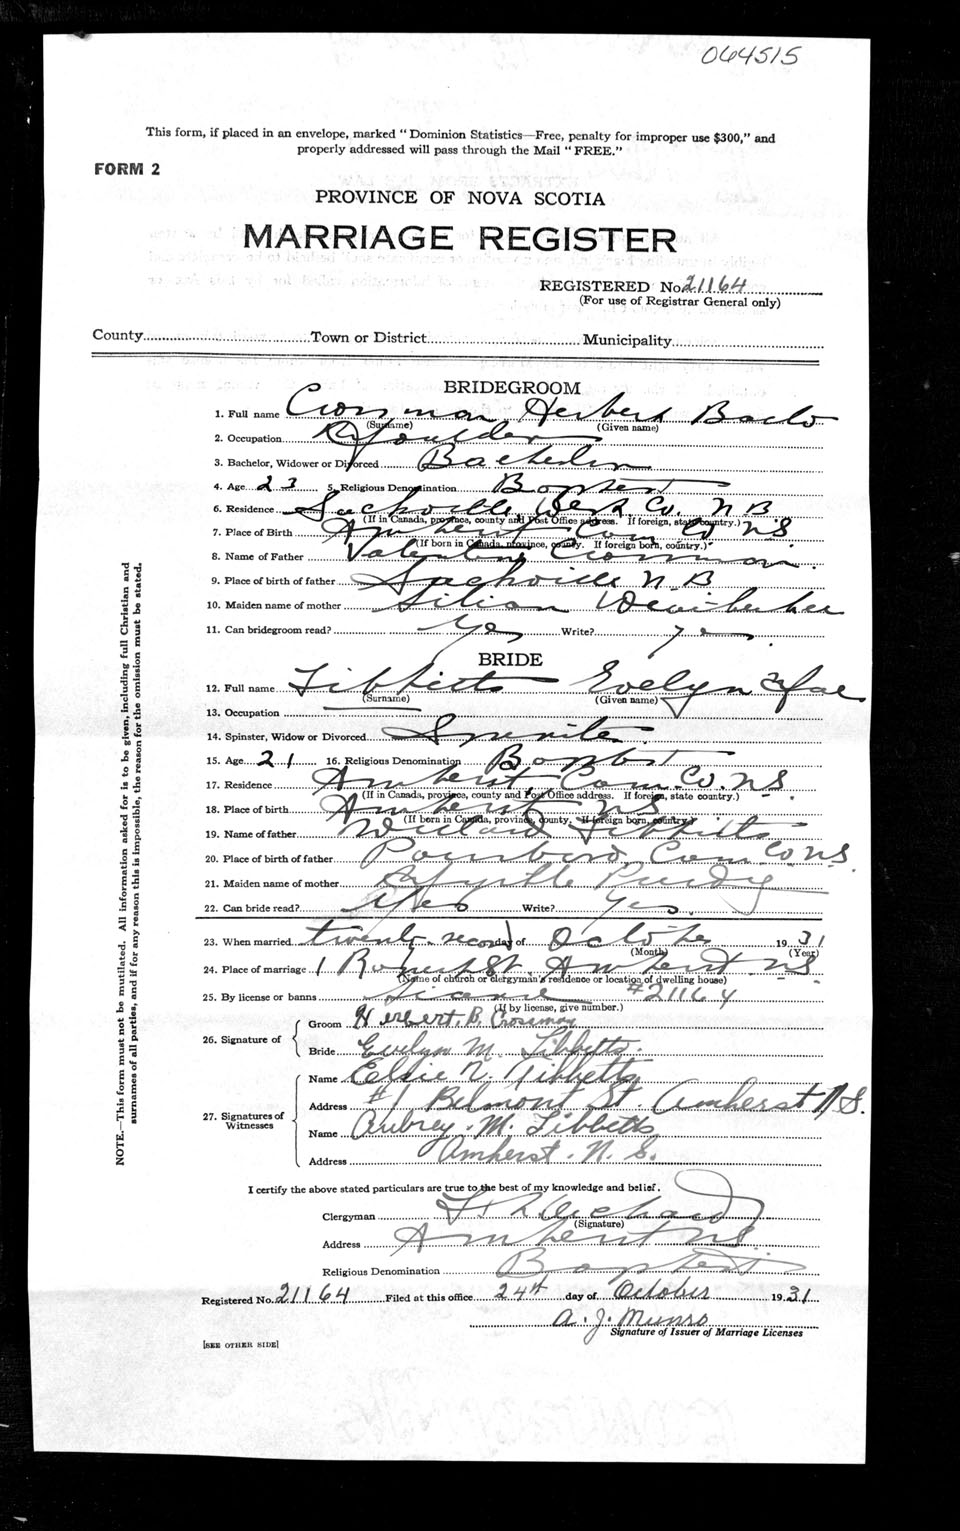 064515
This form, if placed in an envelope, marked "Dominion Statistics—Free, penalty for improper use $300," and
properly addressed will pass through the Mail "FREE."
FORM 2
PROVINCE OF NOVA SCOTIA
MARRIAGE REGISTER
REGISTERED No. 21164
(For use of Registrar General only)
County Town or District Municipality
BRIDEGROOM
1. Full name Crossman Herbert
(Surname) (Given name)
2. Occupation
3. Bachelor, Widower or Divorced Bachelor
4. Age 23 5. Religious Denomination Baptist
6. Residence Sackville West Co. N B
(If in Canada, province, county and Post Office address. If foreign, state country.)
7. Place of Birth Amherst Cum Co N S.
(If born in Canada, province, county. If foreign born, country.)
8. Name of Father Valentine Crossman.
9. Place of birth of father Sackville N B
10. Maiden name of mother Lilian
11. Can bridegroom read? Yes Write? Yes
BRIDE
12. Full name Tibbetts Evelyn Mae
(Surname) (Given name)
13. Occupation
14. Spinster, Widow or Divorced
15. Age 21 16. Religious Denomination Baptist
17. Residence Amherst Cum. Co. N.S.
(If in Canada, province, county and Post Office address. If foreign, state country.)
18. Place of birth Amherst N S
(If born in Canada, province, county, If foreign born, country)
19. Name of father Tibbetts
20. Place of birth of father Cum Co N S.
21. Maiden name of mother Purdy
22. Can bride read? Yes Write? Yes.
23. When married twenty-second day of October 1931
(Month) (Year)
24. Place of marriage 1 St. Amherst N S
(Name of church or clergyman's residence or location of dwelling house)
25. By license or banns License #21164
(If by license, give number.)
26. Signature of
Groom Herbert. B. Crossman
Bride Evelyn M. Tibbetts.
27. Signatures of
Witnesses
Name Elsie V. Tibbetts
Address #1 Belmont St. Amherst N.S.
Name Aubrey. M. Tibbetts
Address Amherst. N. S.
I certify the above stated particulars are true to the best of my knowledge and belief.
Clergyman
(Signature)
Address Amherst N.S.
Religious Denomination Baptist
Registered No. 21164 Filed at this office 24th day of October 1931
A. J. Munro
Signature of Issuer of Marriage Licenses
[SEE OTHER SIDE]
NOTE.—This form must not be mutilated. All information asked for is to be given, including full Christian and
surnames of all parties, and if for any reason this is impossible, the reason for the omission must be stated.